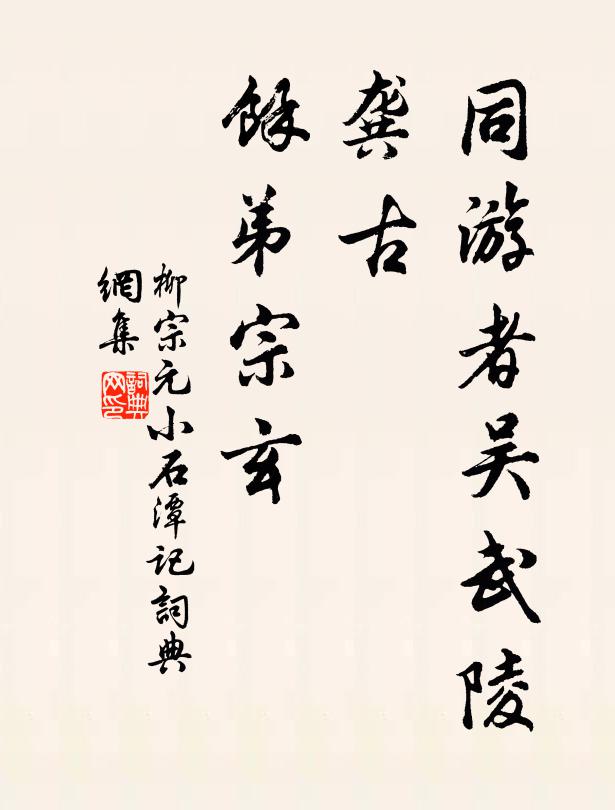 同游者吴武陵
龚古
餘弟宗玄
柳宗元小石潭记詞典
網集
詞典
网印